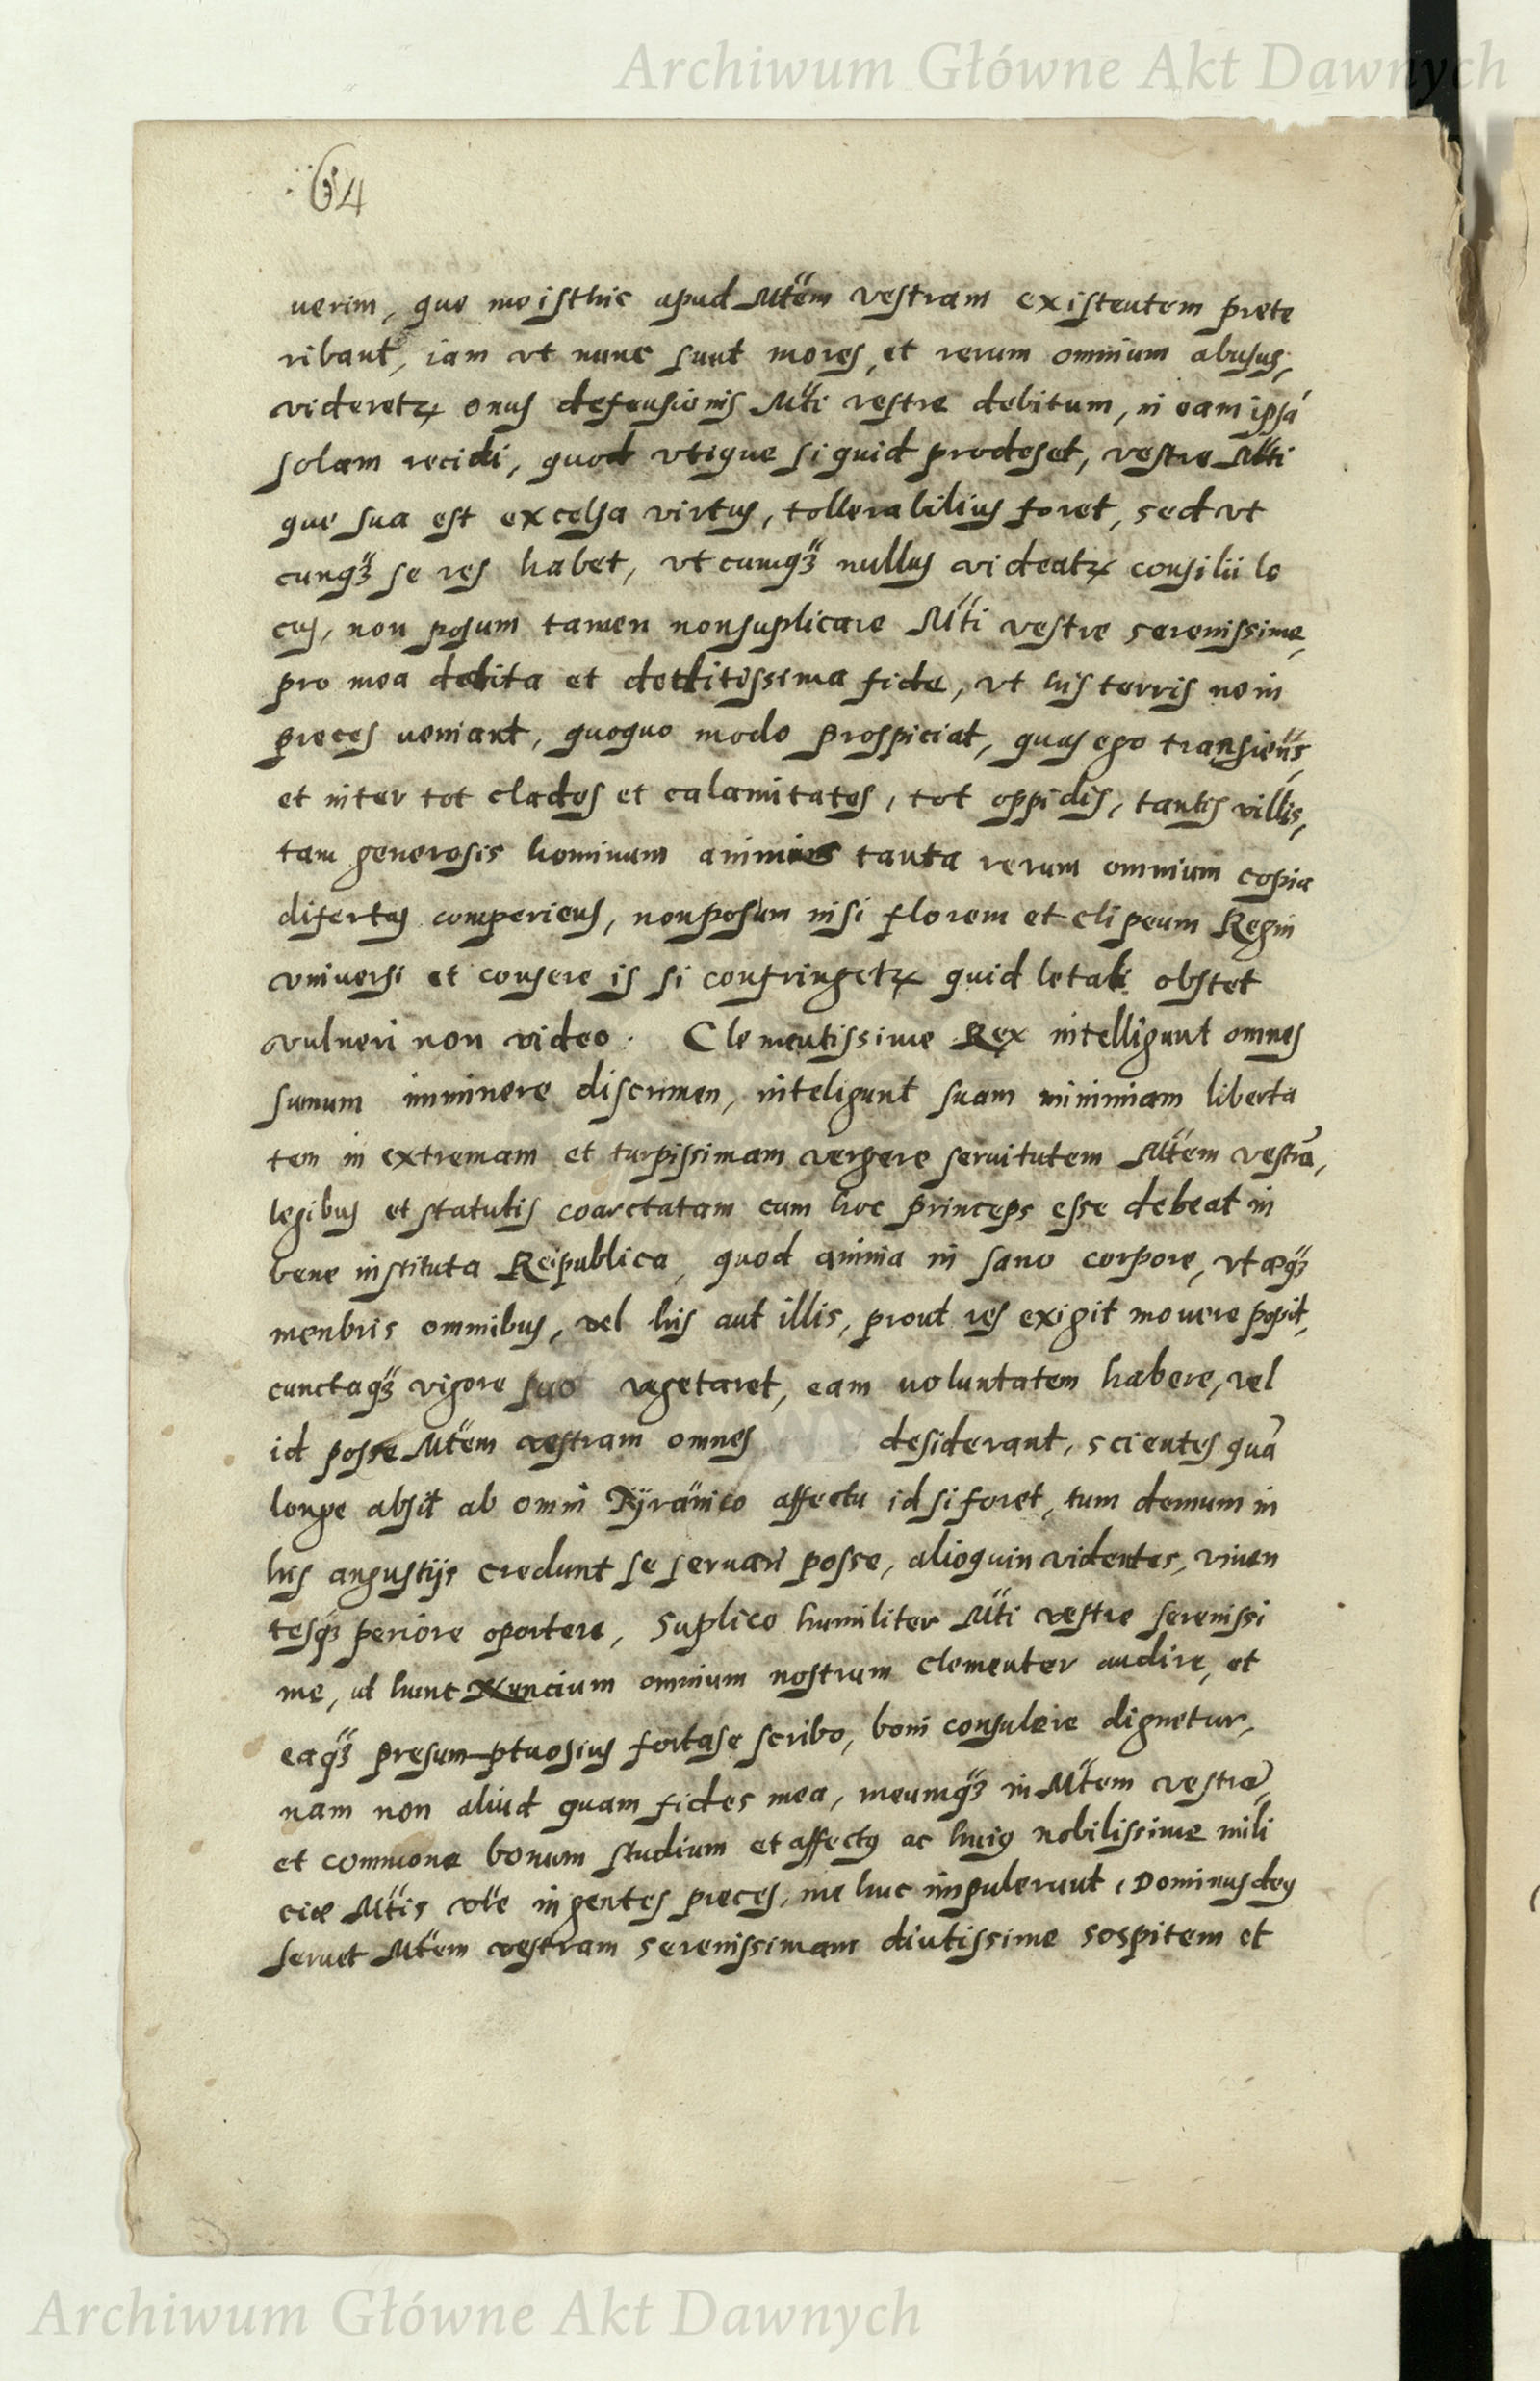 Archiwum Główne Akt Dawnych
64
uerim, que me isthic apud Mtem vestram existentem prete
ribant, iam vt nunc sunt mores, et rerum omnium abusus,
videretur onus defensionis Mti vestre debitum, in eam ipsã
solam recidi, quod vtique si quid prodeset, vestre Mti
que sua est excelsa virtus, tollerabilius foret, sed vt
cunqz se res habet, vt cumqz nullus videatur consilii lo
cus, non posum tamen non suplicare Mti vestre serenissime,
pro mea debita et deditissima fide, vt his terris ne in
preces ueniant, quoquo modo prospiciat, quas ego transiens,
et inter tot clades et calamitates, tot oppidis, tantis villis,
tam generosis hominum animis tanta rerum omnium copia
difertas comperiens, non posum nisi florem et clipeum Regni
vniversi et consere is si confringetur quid letali obstet
vulneri non video. Clementissime Rex intelligunt omnes
sumum imminere discrimen, inteligunt suam nimiam liberta
tem in extremam et turpissimam vergere seruitutem Mtem vestrã,
legibus et statutis coarctatam cum hoc princeps esse debeat in
bene instituta Reipublica, quod anima in sano corpore, vt æqz
menbris omnibus, vel his aut illis, prout res exigit mouere posit,
cunctaqz vigore suo vegetaret, eam uoluntatem habere, vel
id posse Mtem vestram omnes desiderant, scientes quã
longe absit ab omni Tÿranico affectu id si foret, tum demum in
his angustijs credunt se seruari posse, alioquin videntes, viuen
tesqz periore oportere, Suplico humiliter Mti vestre serenissi
me, ut hunc Nuncium omnium nostrum clementer audire, et
eaqz presumptuosius fortase scribo, boni consulere dignetur,
nam non aliud quam fides mea, meumqz in Mtem vestrã,
et commone bonum studium et affectus ac huius nobilissime mili
ciæ Mtis vre ingentes preces, me huc impulerunt, Dominus deus
seruet Mtem vestram serenissimam diutissime sospitem et
Archiwum Główne Akt Dawnych